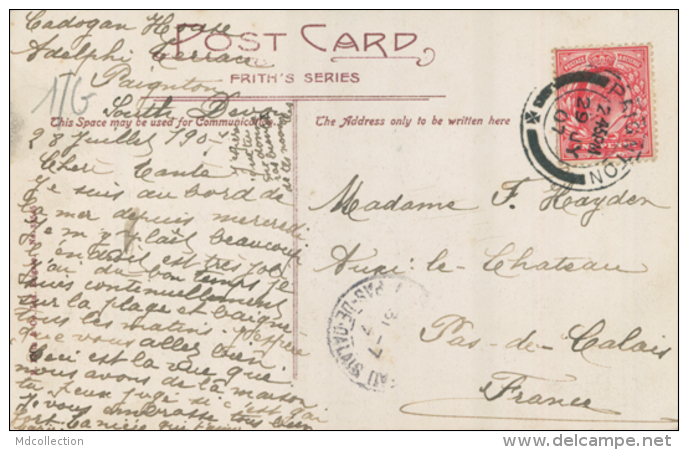 Cadogan House
Adelphi Terrace
Paignton
South Devon
POST CARD
FRITH'S SERIES
This Space may be used for Communication.
The Address only to be written here
28 Juillet 190
Chère Tante
Je suis au bord de
la mer depuis mercredi
Je m'y plait beaucoup
l'endroit est très joli
J'ai du bon temps je
suis continuellement
sur la plage et baigne
tous les matins. J'espère
que vous allez bien.
Ceci est la vue que
nous avons de la maison
tu peux jugé si c'est gai
Je vous embrasse tous bien
fort
Madame F. Hayden
Auxi-le-Chateau
Pas-de-Calais
France
PAIGNTON
29 JY
07
PAS-DE-CALAIS
31-7
Mdcollection
www.delcampe.net